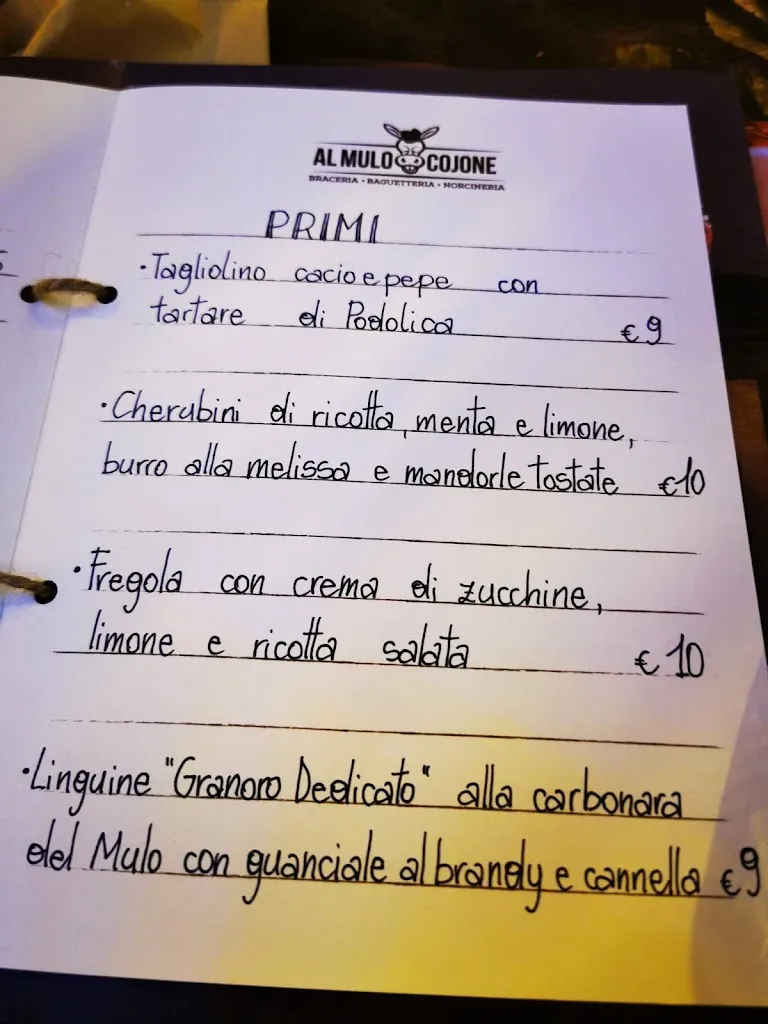 AL MULO COJONE
BRACERIA • BAGUETTERIA • NORCINERIA
PRIMI
•Tagliolino cacio e pepe con
tartare di Podolica €9
•Cherubini di ricotta, menta e limone,
burro alla melissa e mandorle tostate €10
•Fregola con crema di zucchine,
limone e ricotta salata €10
•Linguine "Granoro Dedicato" alla carbonara
del Mulo con guanciale al brandy e cannella €9